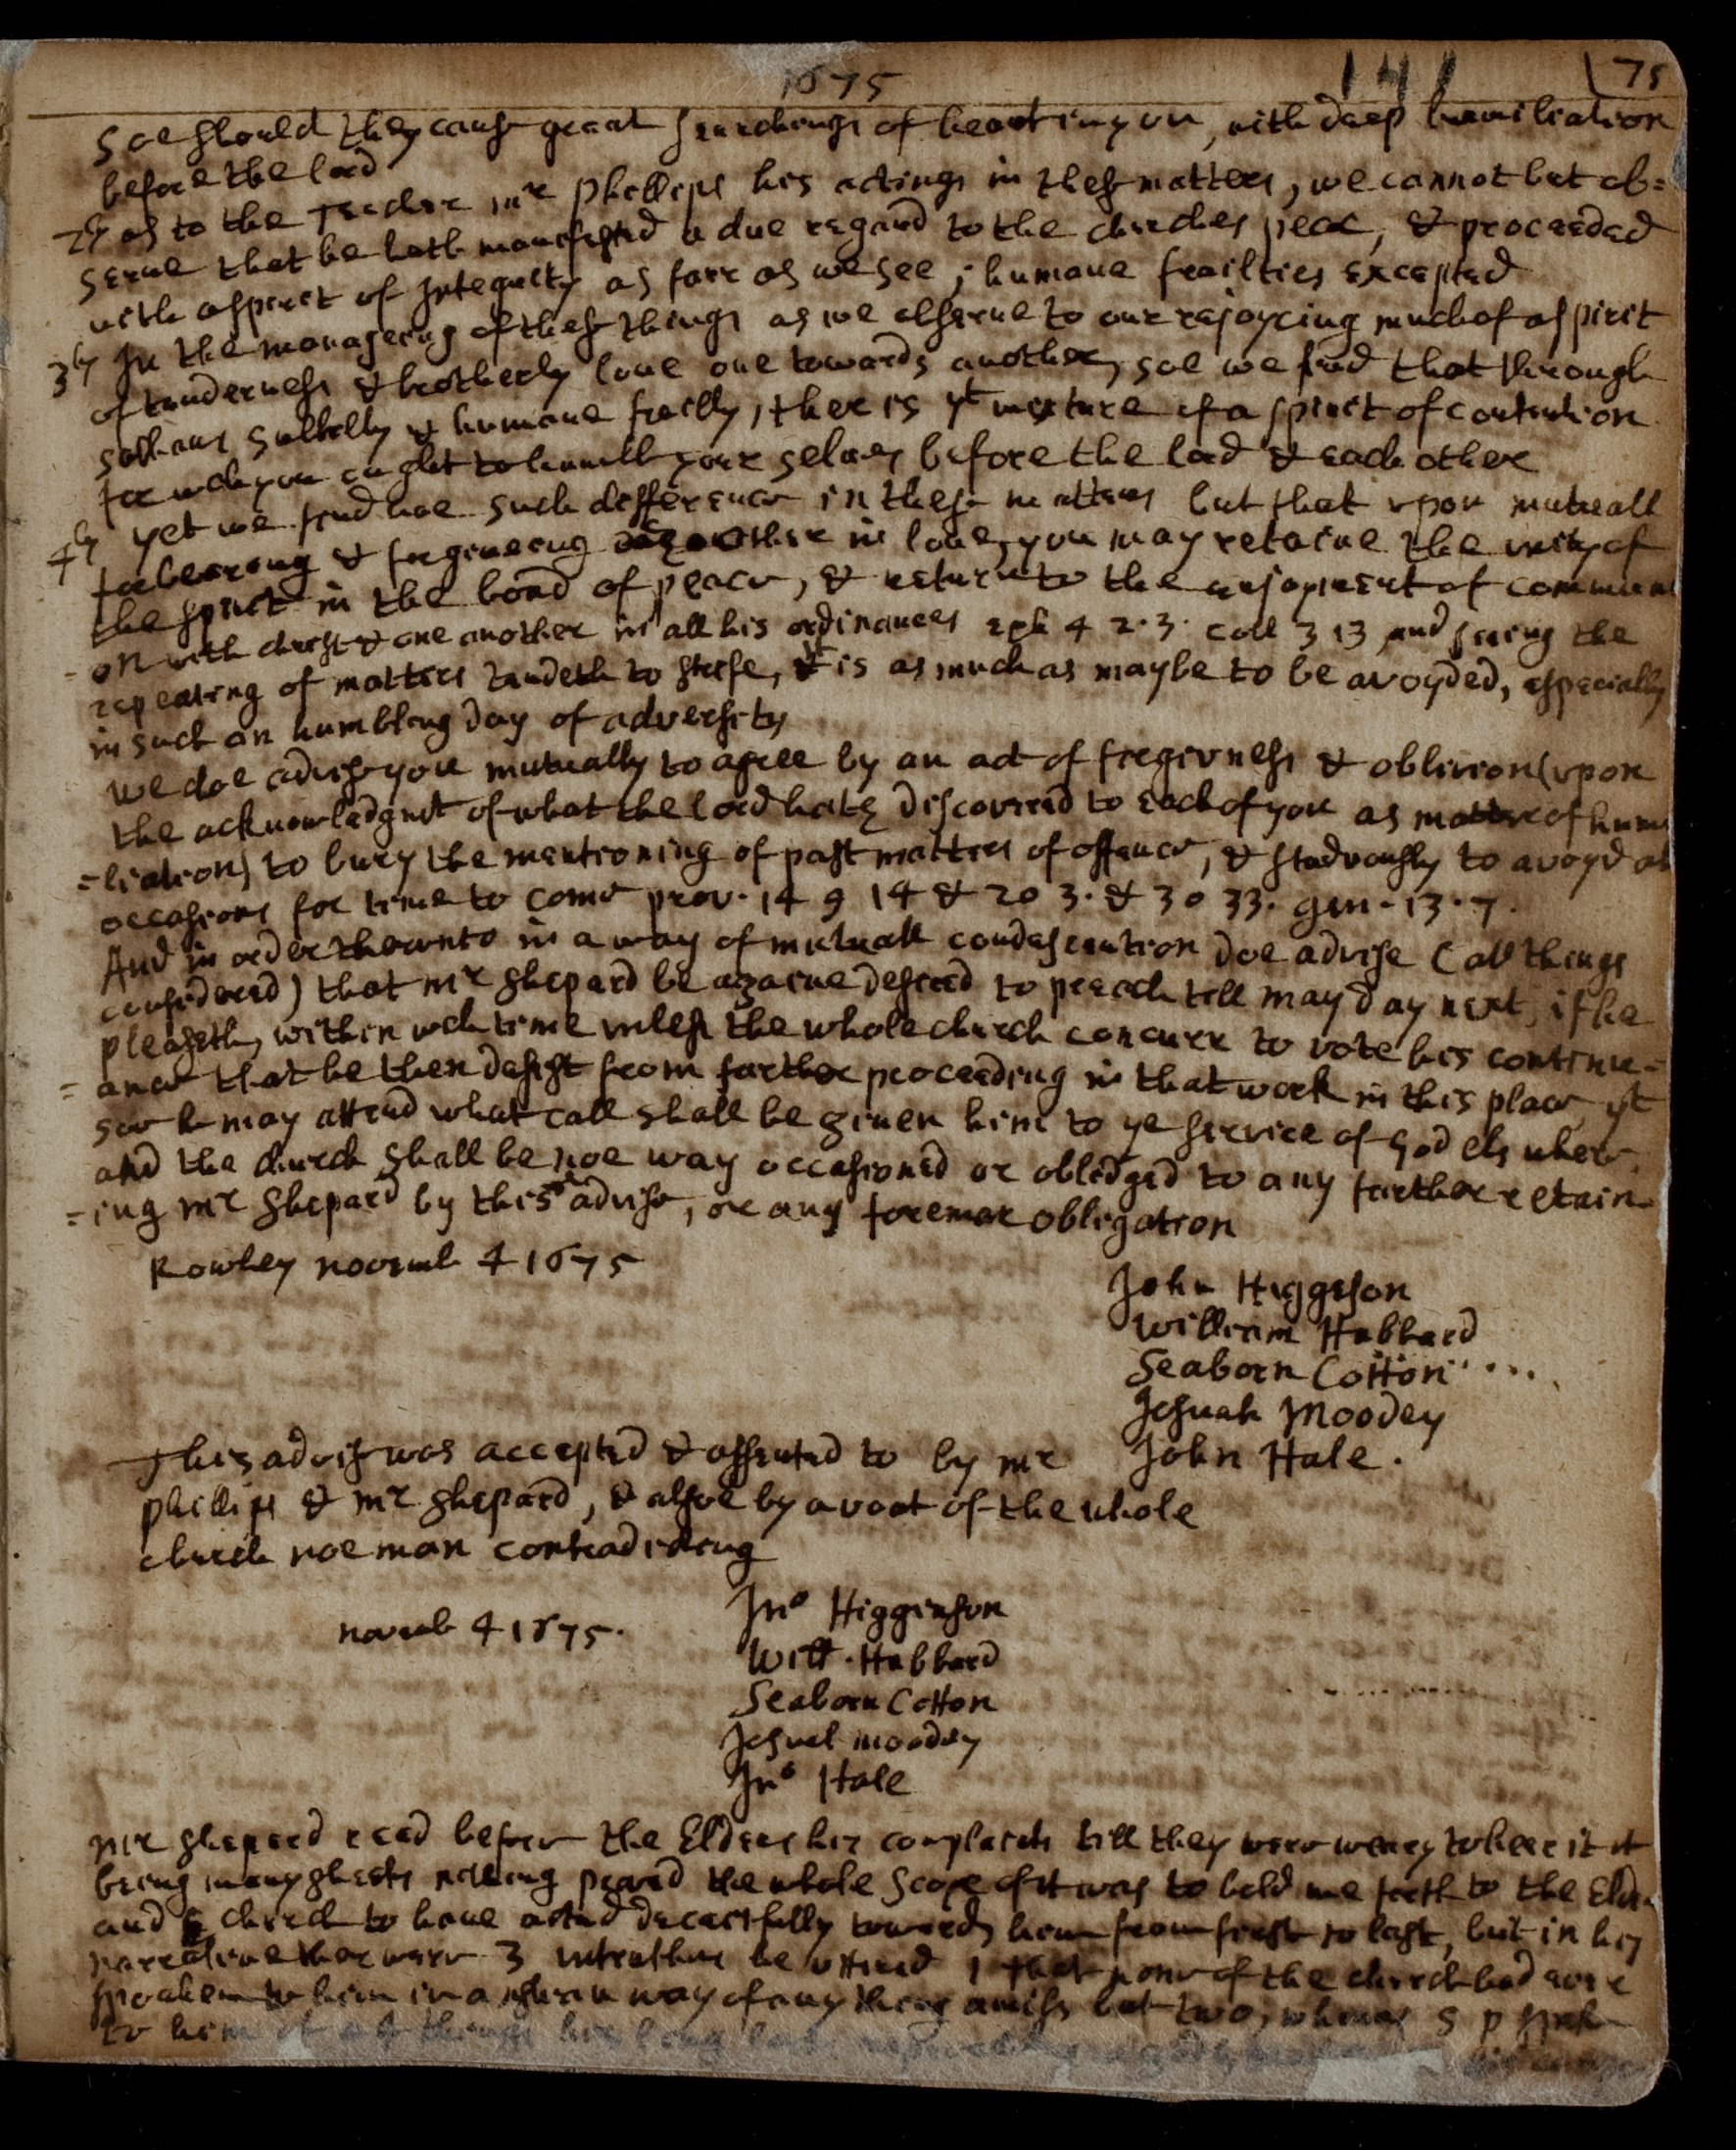 1675 141 175
soe should they cause great searchings of heart in you, with deep humiliation
before the lord
2ly as to the Teacher mr Phillips his actings in these matters, we cannot but ob=
serve that he hath manifested a due regard to the churches peac, & proceeded
with a spirit of Integrity as farr as we see; humane frailties excepted
3ly In the manageing of these things as we observe to our rejoycing much of a spirit
of tenderness & brotherly love one towards another, soe we find that through
sathans subtilty & humane frailty, ther is yt mixture of a spirit of contention
for wch you ought to humble your selves before the lord & each other
4ly yet we find noe such difference in these matters but that upon mutuall
forbearing & forgiveing one another in love, you may retaine the unity of
the spirit in the bond of peace, & return to the enjoyment of communi
-on with christ & one another in all his ordinances eph 4 2.3. coll 3 13 and seeing the
repeating of matters tendeth to strife, it is as much as maybe to be avoyded, especially
in such an humbling day of adversity
we doe advise you mutually to agree by an act of forgivness & oblivion (upon
the acknowledgmt of what the lord hath discovered to each of you as matter of humi
=liation) to bury the mentioning of past matters of offence, & studiously to avoyd all
occasions for time to come prov. 14 9 14 & 20 3. & 30 33. gen. 13. 7.
And in order thereunto in a way of mutuall condescention doe advise (all things
considered) that mr Shepard be againe desired to preach till may day next, if he
pleaseth, within wch time unless the whole church concurr to vote his continu=
=ance that he then desist from farther proceeding in that work in this place yt
soe he may attend what call shall be given him to ye service of god els wher.
and the church shall be noe way occasioned or obledged to any farther retain=
=ing mr Shepard by this advise, or any foremer obligation
Rowley novemb 4 1675
John Higgeson
William Hubbard
Seaborn Cotton
Joshuah Moodey
John Hale.
This advise was accepted & assented to by mr
phillips & mr Shepard, & alsoe by a voat of the whole
church noe man contradicting
novemb 4 1675.
Jno Higginson
Will. Hubbard
Seaborn Cotton
Joshuah moodey
Jno Hale
mr Shepard read before the Elders his complaints till they were weary to hear it it
being many sheets nothing proved the whole scope of it was to hold me forth to the Elders
and church to have acted deceitfully towards him from first to last, but in his
narrative ther were 3 untruthes he uttered 1 that none of the church had ever
spoken to him in a way of any thing amiss but two, whereas S P spake
to him of things